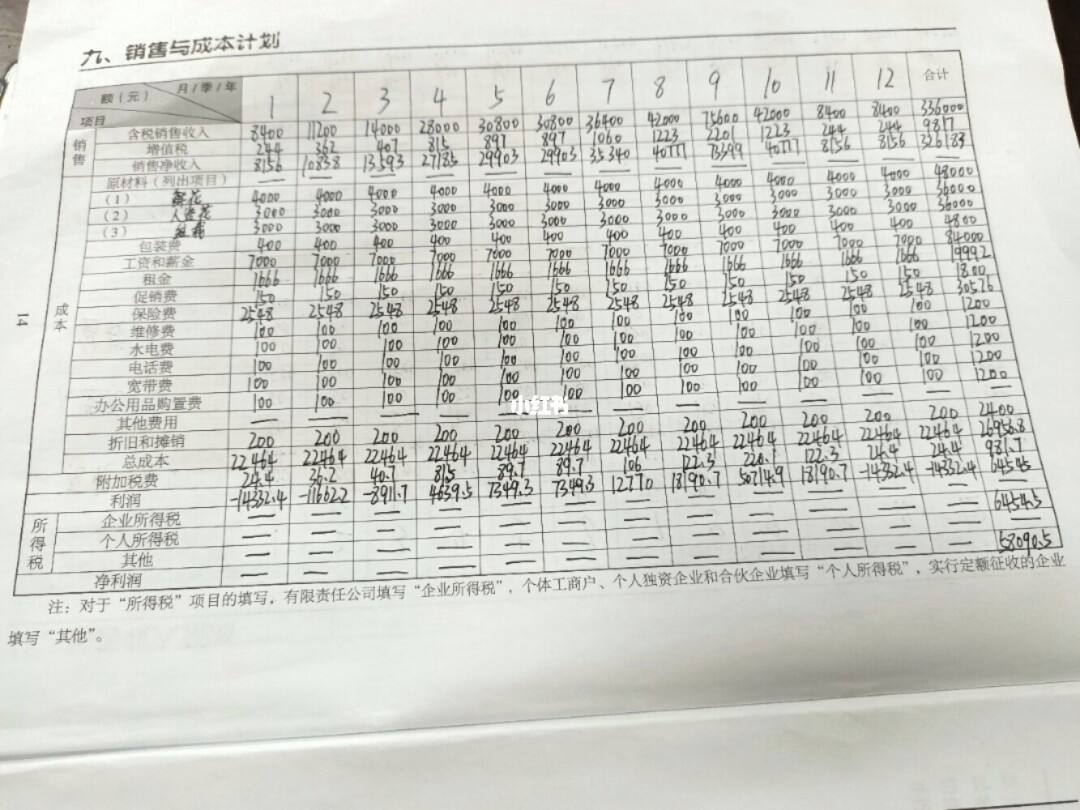 九、销售与成本计划
额（元） 月/季/年 1 2 3 4 5 6 7 8 9 10 11 12 合计
项目
销售 含税销售收入 8400 11200 14000 28000 30800 30800 36400 42000 75600 42000 8400 8400 336000
增值税 244 362 407 815 897 897 1060 1223 2201 1223 244 244 9817
销售净收入 8156 10838 13593 27185 29903 29903 35340 40777 73399 40777 8156 8156 326183
成本 原材料（列出项目） — — — — — — — — — — — —
（1） 鲜花 4000 4000 4000 4000 4000 4000 4000 4000 4000 4000 4000 4000 48000
（2） 人造花 3000 3000 3000 3000 3000 3000 3000 3000 3000 3000 3000 3000 36000
（3） 3000 3000 3000 3000 3000 3000 3000 3000 3000 3000 3000 3000 36000
包装费 400 400 400 400 400 400 400 400 400 400 400 400 4800
工资和薪金 7000 7000 7000 7000 7000 7000 7000 7000 7000 7000 7000 7000 84000
租金 1666 1666 1666 1666 1666 1666 1666 1666 1666 1666 1666 1666 19992
促销费 150 150 150 150 150 150 150 150 150 150 150 150 1800
保险费 2548 2548 2548 2548 2548 2548 2548 2548 2548 2548 2548 2548 30576
维修费 100 100 100 100 100 100 100 100 100 100 100 100 1200
水电费 100 100 100 100 100 100 100 100 100 100 100 100 1200
电话费 100 100 100 100 100 100 100 100 100 100 100 100 1200
宽带费 100 100 100 100 100 100 100 100 100 100 100 100 1200
办公用品购置费 100 100 100 100 100 100 100 100 100 100 100 100 1200
其他费用 — — — — — — — — — — — — —
折旧和摊销 200 200 200 200 200 200 200 200 200 200 200 200 2400
总成本 22464 22464 22464 22464 22464 22464 22464 22464 22464 22464 22464 22464 269568
附加税费 24.4 36.2 40.7 81.5 89.7 89.7 106 122.3 220.1 122.3 24.4 24.4 981.7
利润 -14332.4 -11662.2 -8911.7 4639.5 7349.3 7349.3 12770 18190.7 50714.9 18190.7 -14332.4 -14332.4
所得税 企业所得税 — — — — — — — — — — — —
个人所得税 — — — — — — — — — — — — 6454.5
其他 — — — — — — — — — — — — —
净利润 — — — — — — — — — — — — 58090.5
注：对于“所得税”项目的填写，有限责任公司填写“企业所得税”，个体工商户、个人独资企业和合伙企业填写“个人所得税”，实行定额征收的企业
填写“其他”。
14
小红书